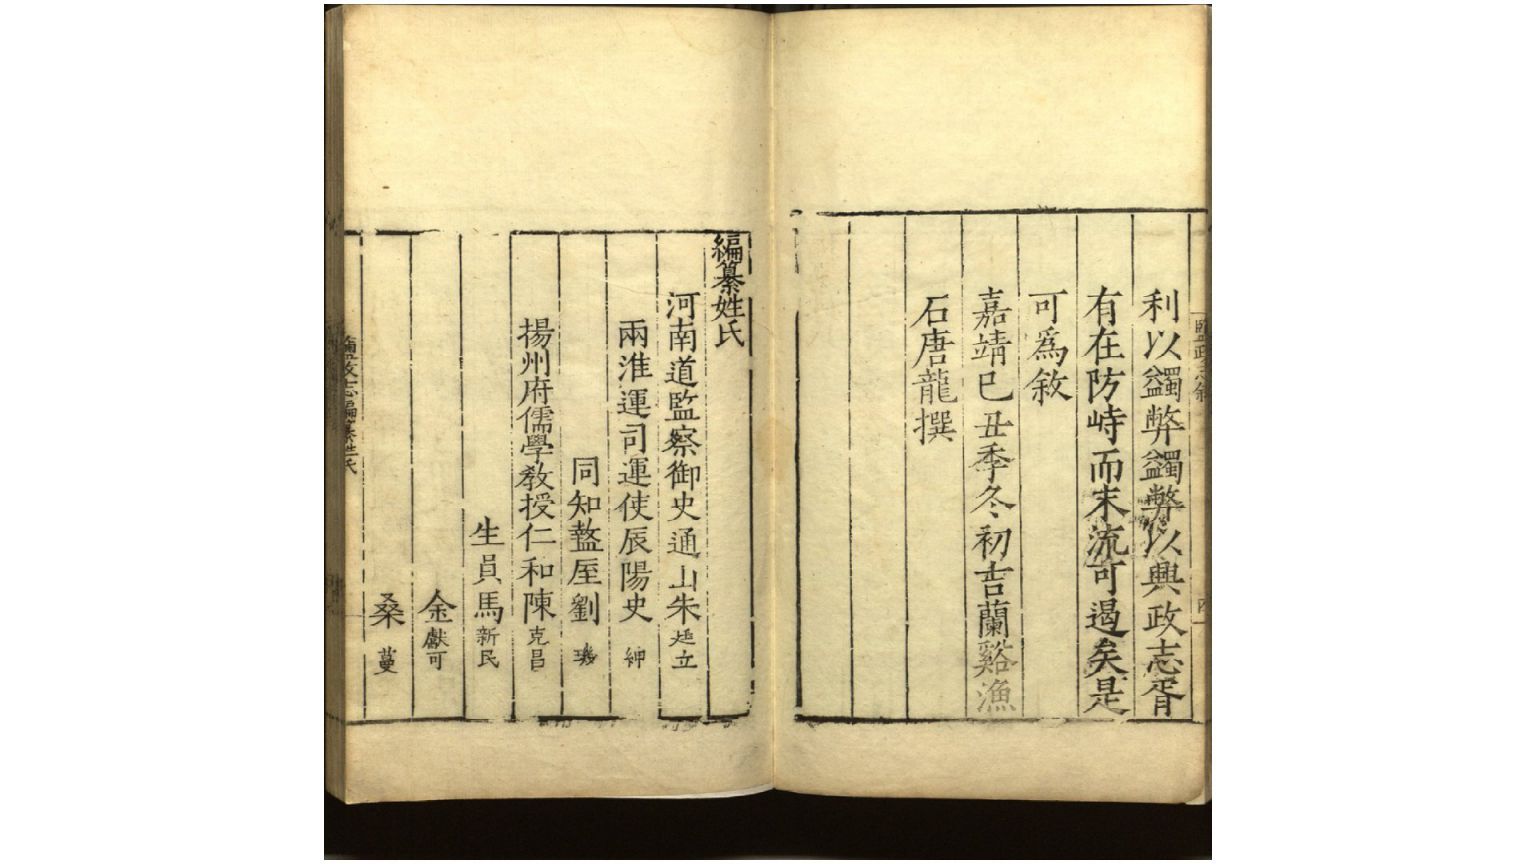 利以蠲弊蠲弊以興政志胥
有在防峙而末流可遏矣是
可爲敘
嘉靖己丑季冬初吉蘭谿漁
石唐龍撰
編纂姓氏
河南道監察御史通山朱廷立
兩淮運司運使辰陽史紳
同知盩厔劉
揚州府儒學教授仁和陳克昌
生員馬新民
余獻可
桑蔓
鹽政志編纂姓氏